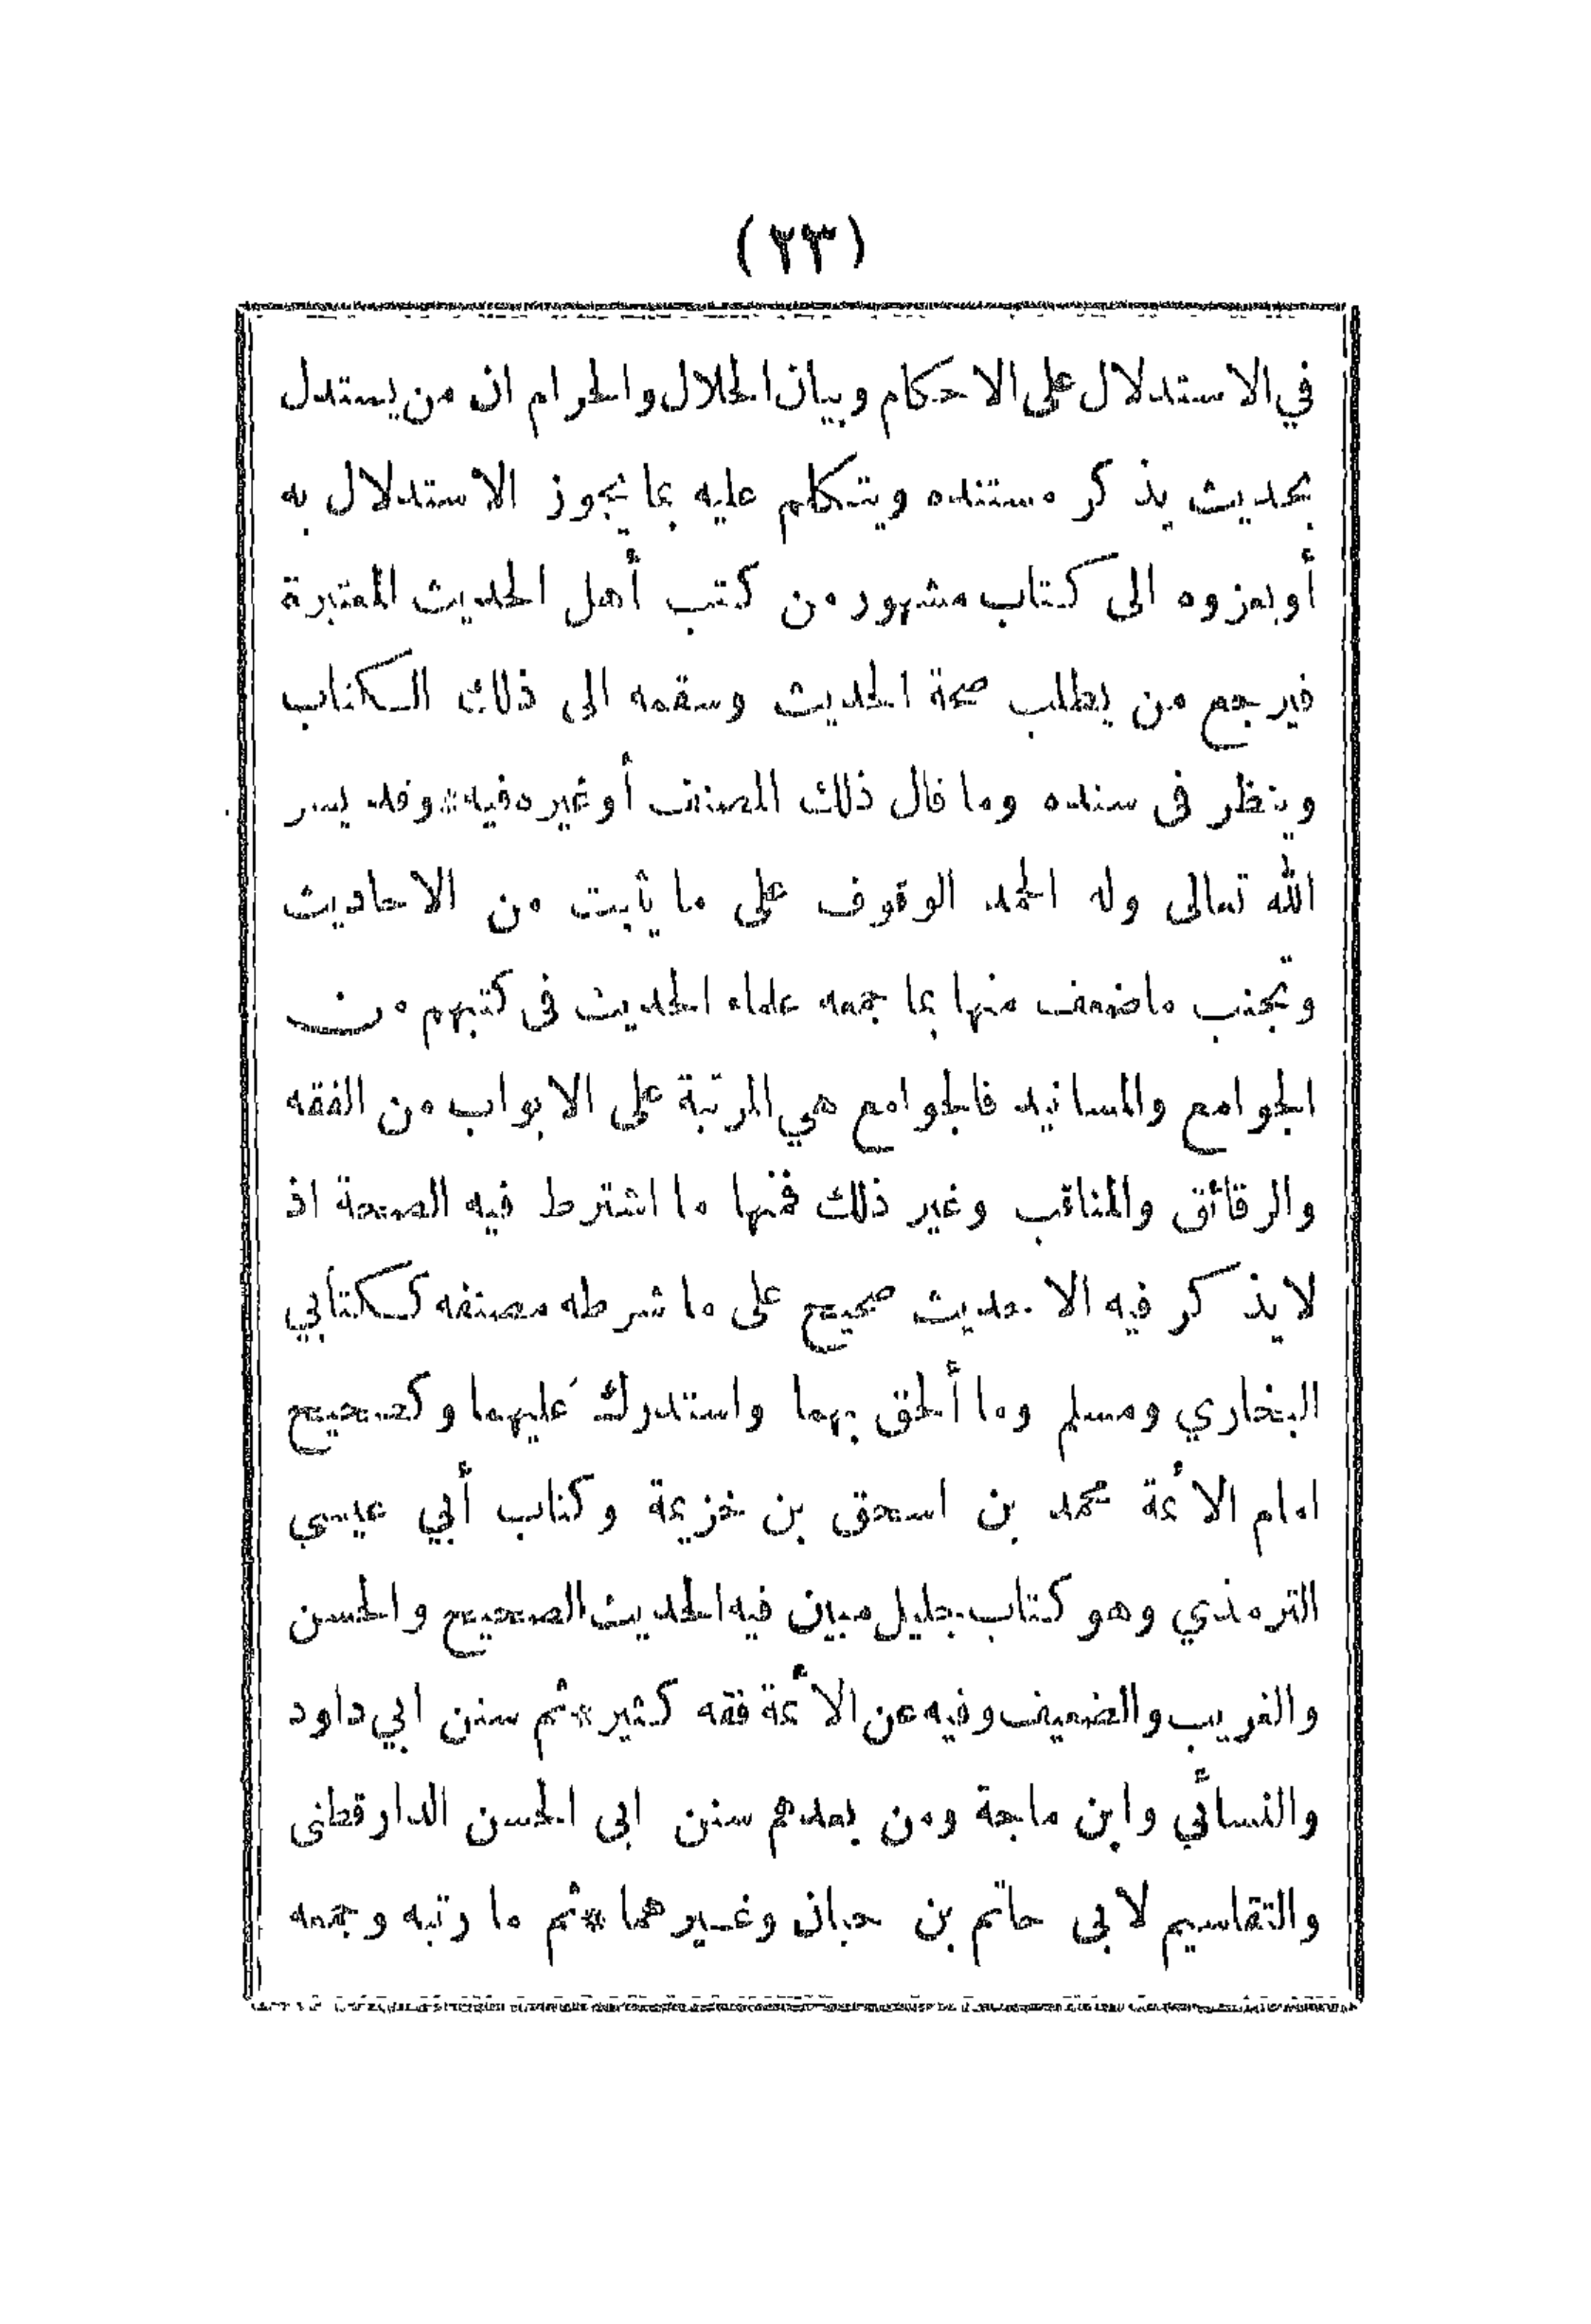 (٢٣)
في الاستدلال على الاحكام وبيان الحلال والحرام ان من يستدل
بحديث يذكر مستنده ويتكلم عليه بما يجوز الاستدلال به
أو يعزوه الى كتاب مشهور من كتب أهل الحديث المعتبرة
فيرجع من يطلب صحة الحديث وسقمه الى ذلك الكتاب
وينظر فى سنده وما قال ذلك المصنف أو غيره فيه * وقد يسر
الله تعالى وله الحمد الوقوف على ما يثبت من الاحاديث
وتجنب ما ضعف منها بما جمعه علماء الحديث فى كتبهم من
الجوامع والمسانيد فالجوامع هي المرتبة على الابواب من الفقه
والرقائق والمناقب وغير ذلك فمنها ما اشترط فيه الصحة اذ
لا يذكر فيه الا حديث صحيح على ما شرطه مصنفه ككتابي
البخاري ومسلم وما أُلحق بهما واستدرك عليهما وكصحيح
امام الأئمة محمد بن اسحق بن خزيمة وكتاب أبي عيسى
الترمذي وهو كتاب جليل مبين فيه الحديث الصحيح والحسن
والغريب والضعيف وفيه عن الأئمة فقه كثير * ثم سنن ابي داود
والنسائي وابن ماجة ومن بعدهم سنن ابى الحسن الدارقطنى
والتقاسيم لابى حاتم بن حبان وغيرهما * ثم ما رتبه وجمعه